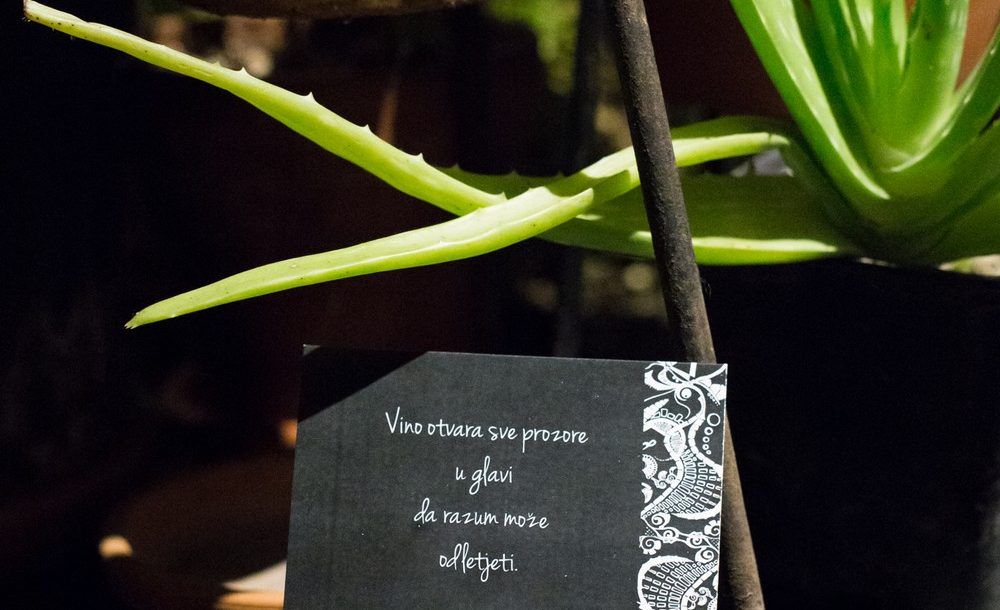 Vino otvara sve prozore
u glavi
da razum može
odletjeti.